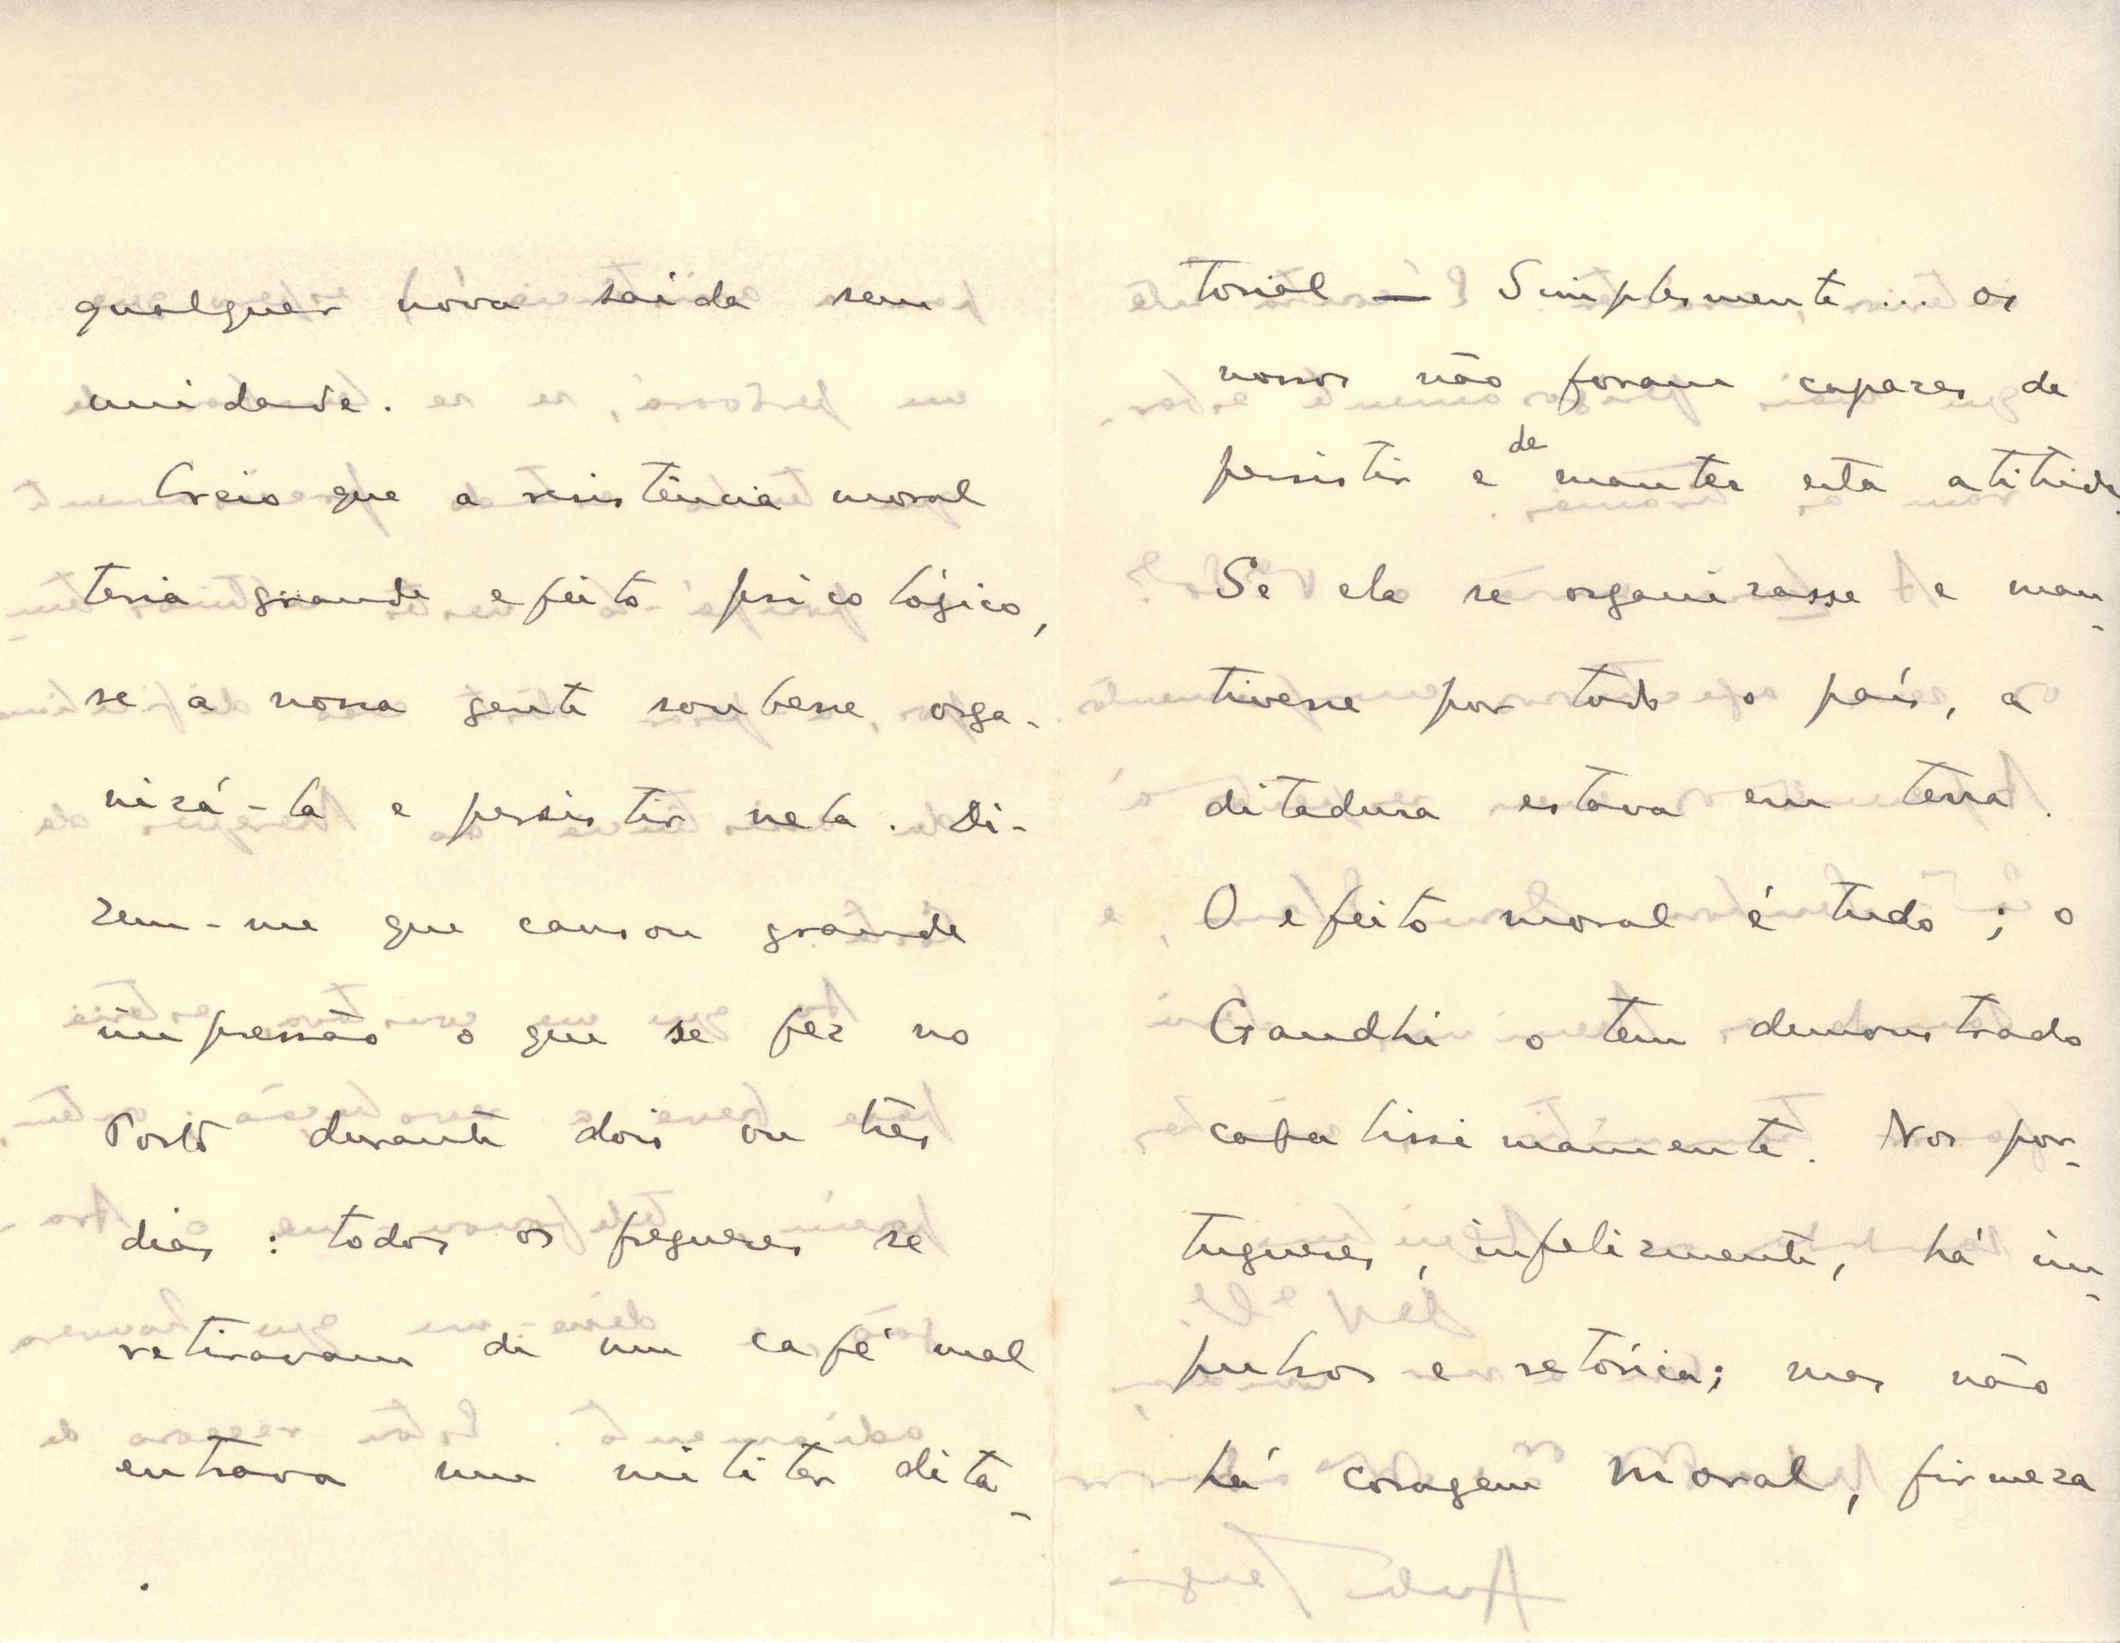 qualquer nova saída sem
unidade.
Creio que a resistência moral
teria grande efeito psicológico,
se a nossa gente soubesse orga-
nizá-la e persistir nela. Di-
zem-me que causou grande
impressão o que se fez no
Porto durante dois ou três
dias : todos os fregueses se
retiravam de um café mal
entrava um militar dita-
torial — Simplesmente... os
nossos não foram capazes de
persistir e de manter esta atitude.
Se ela se organizasse e man-
tivesse por todo o país, a
ditadura estava em terra.
O efeito moral é tudo ; o
Gandhi o tem demonstrado
cabalissimamente. Nos por-
tugueses, infelizmente, há im-
pulsos e retórica; mas não
há coragem moral, firmeza